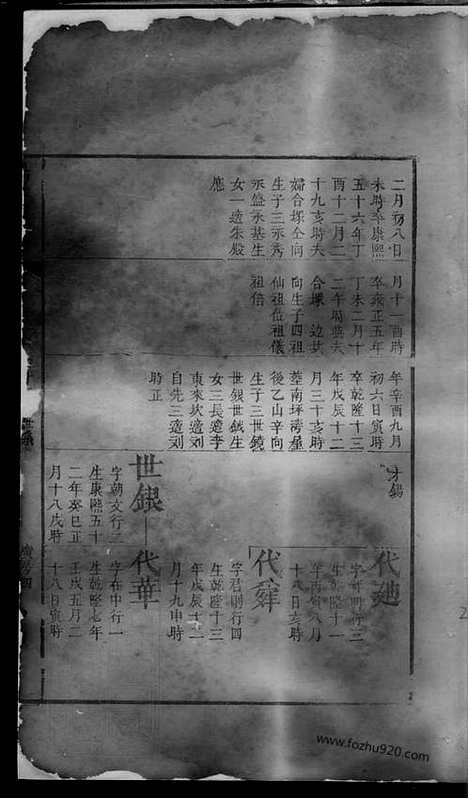 二月初八日
未時卒康熙
五十六年丁
酉十二月二
十九亥時夫
婦合塚仝向
生子三永秀
永盛永基生
女一適朱殿
應
月十一酉時
卒雍正五年
丁未二月十
二午時
合塚
向生子四祖
仙祖伍祖儀
祖倍
年辛酉九月
初六日寅時
卒乾隆十三
年戊辰十二
月三十亥時
塟南坪灣屋
後乙山辛向
生子三世鏡
世銀世鉞生
女三長適李
東來次適刘
自先三適刘
時正
代廸
行三
生乾隆十一
年丙寅八月
十八日亥時
代舜
字君則行四
生乾隆十三
年戊辰十二
月十九申時
世銀
字朝文行二
生康熙五十
二年癸巳正
月十八戌時
代華
字在中行一
生乾隆七年
壬戌五月二
十八日寅時
www.fozhu920.com